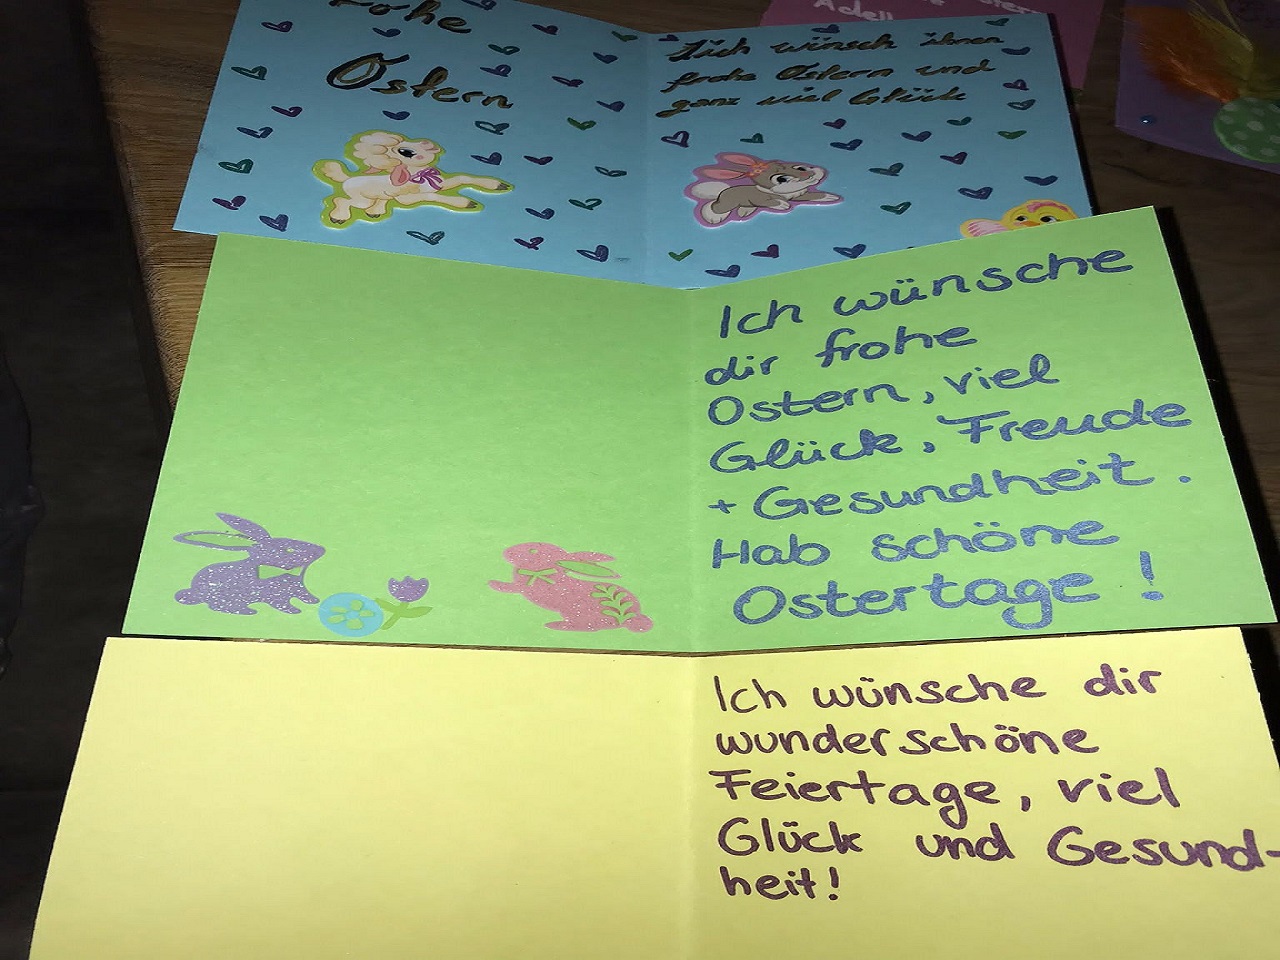 Frohe
Ostern
Ich wünsch ihnen
frohe Ostern und
ganz viel Glück
Adell
Ich wünsche
dir frohe
Ostern, viel
Glück, Freude
+ Gesundheit.
Hab schöne
Ostertage!
Ich wünsche dir
wunderschöne
Feiertage, viel
Glück und Gesund-
heit!